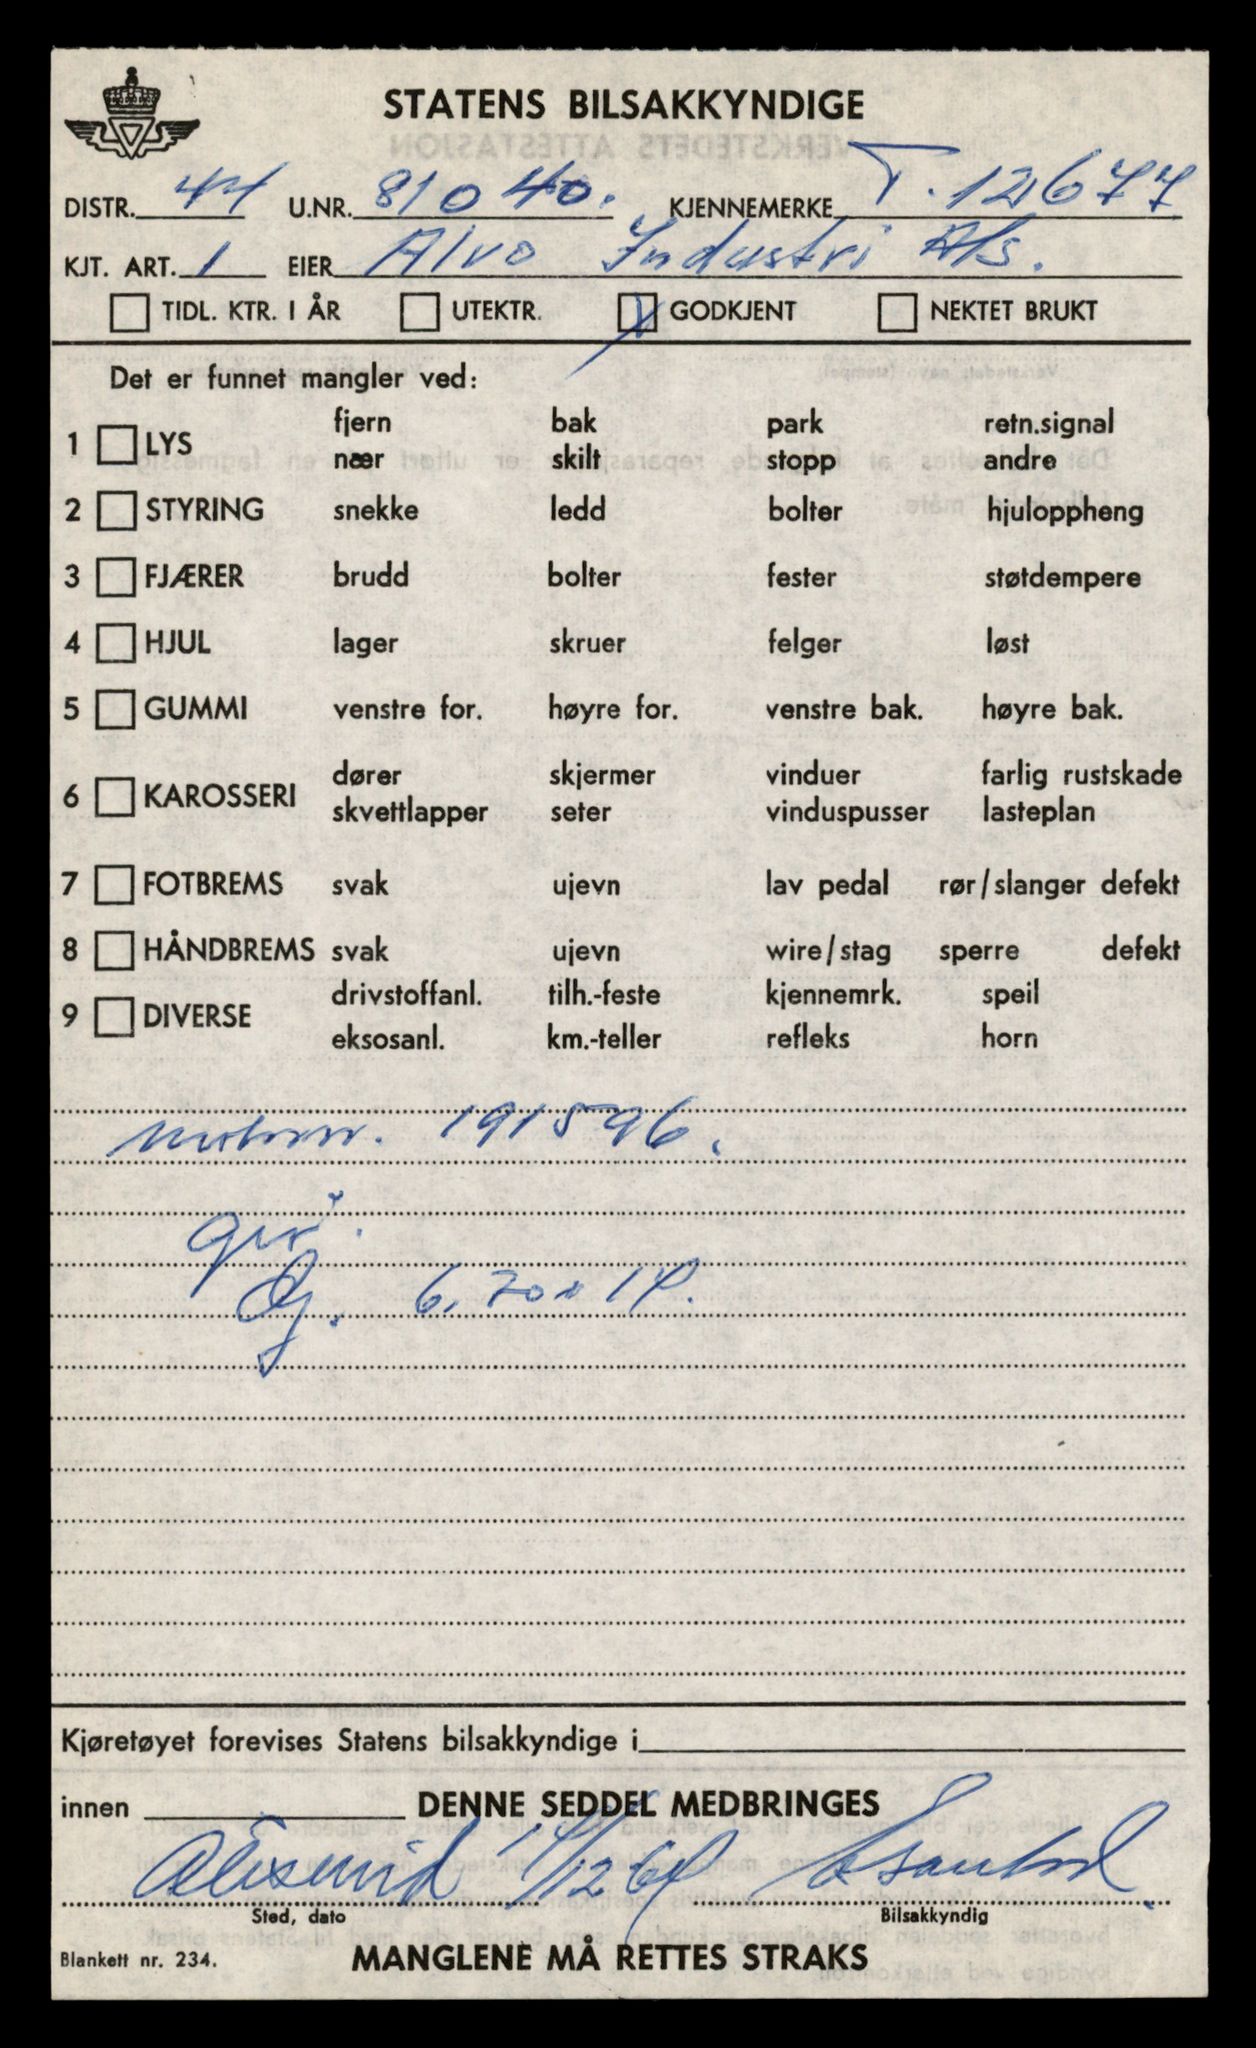 STATENS BILSAKKYNDIGE
DISTR. 44 U.NR. 81040. KJENNEMERKE T. 12677
KJT. ART. 1 EIER Alvo Industri A/s.
TIDL. KTR. I ÅR UTEKTR. X GODKJENT NEKTET BRUKT
Det er funnet mangler ved:
1 LYS fjern bak park retn.signal
nær skilt stopp andre
2 STYRING snekke ledd bolter hjuloppheng
3 FJÆRER brudd bolter fester støtdempere
4 HJUL lager skruer felger løst
5 GUMMI venstre for. høyre for. venstre bak. høyre bak.
6 KAROSSERI dører skjermer vinduer farlig rustskade
skvettlapper seter vinduspusser lasteplan
7 FOTBREMS svak ujevn lav pedal rør/slanger defekt
8 HÅNDBREMS svak ujevn wire/stag sperre defekt
9 DIVERSE drivstoffanl. tilh.-feste kjennemrk. speil
eksosanl. km.-teller refleks horn
motornr. 191596.
grå.
Gj. 6.70x14.
Kjøretøyet forevises Statens bilsakkyndige i
innen DENNE SEDDEL MEDBRINGES
Ålesund 14/12 64
Sted, dato Bilsakkyndig
Blankett nr. 234. MANGLENE MÅ RETTES STRAKS